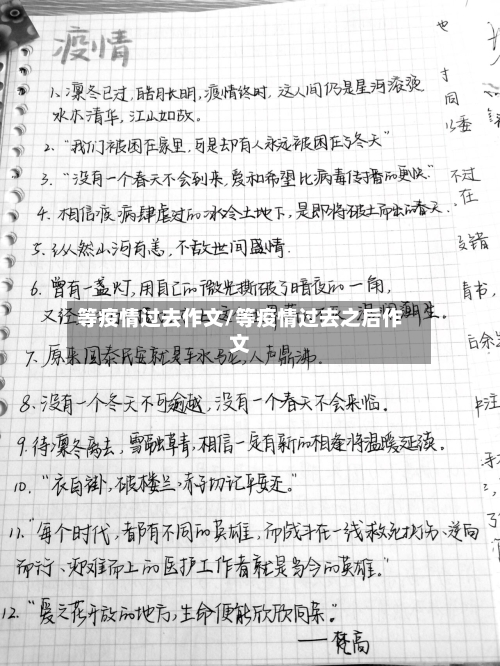 疫情
1、凛冬已过,皓月长明,疫情终时,这人间仍是星河滚烫
水木清华,江山如故。
2、“我们被困在家里,可是却有人永远被困在了冬天”
3、“没有一个春天不会到来,爱和希望比病毒传播的更快”
4、相信疫病肆虐过的冰冷土地下,是即将破土而出的春天.
5、纵然山河有恙,不敌世间盛情.
6、曾有一盏灯,用自己的微光撕破了暗夜的一角,
又经
生。
等疫情过去作文/等疫情过去之后作
文
7、原来国泰民安就是车水马龙,人声鼎沸.
8、没有一个冬天不可逾越,没有一个春天不会来临。
9、待凛冬离去,雪融草青,相信一定有新的相逢将温暖延续。
10、“衣白褂,破楼兰,赤子切记平安还。”
11、“每个时代,都有不同的英雄,而战斗在一线救死扶伤、逆向
而行、迎难而上的医护工作者就是当今的英雄。”
12、“爱之花开放的地方,生命便能欣欣向荣。”
——梵高
也
寸
同
以委
不过
在
青书,